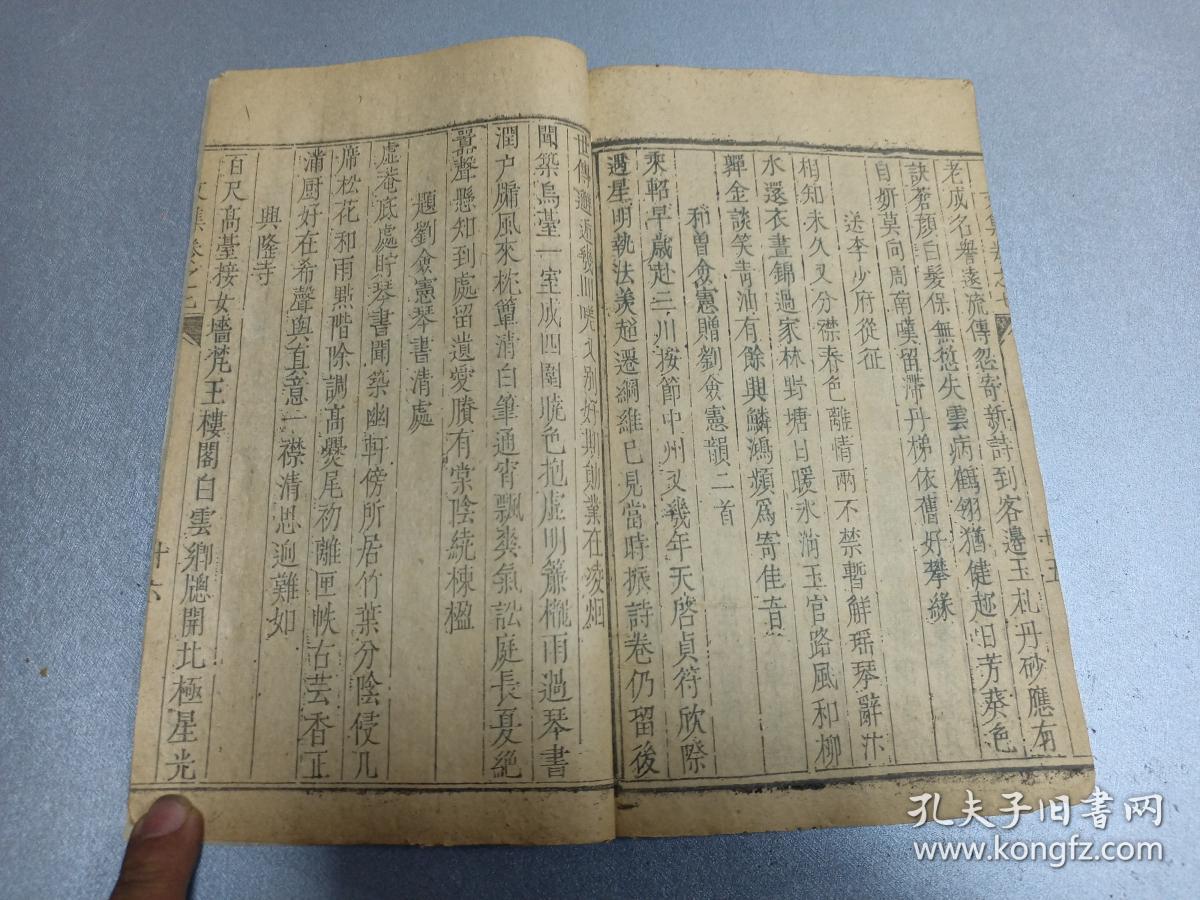 老成名譽遠流傳忽寄新詩到客邊玉札丹砂應有
訣蒼顏白髮保無愆失雲病鶴翎猶健趂日芳葵色
自妍莫向周南嘆留滯丹梯依舊好攀緣
送李少府從征
相知未久又分襟春色離情兩不禁暫解瑶琴辭汴
水還衣晝錦過家林野塘日暖氷消玉官路風和柳
嚲金談笑青油有餘興鱗鴻頻爲寄佳音
和曽僉憲贈劉僉憲韻二首
乘軺早歲赴三川按節中州又幾年天啓貞符欣際
遇星明執法羙超遷綱維已見當時振詩卷仍留後
十五
世傳邂逅幾回嗟又别好期勛業在凌烟
聞築烏臺一室成四圍曉色抱虚明簷櫳雨過琴書
潤户牖風來枕簟清白筆通宵飄爽氣訟庭長夏絶
囂聲懸知到處留遺愛賸有棠陰繞棟楹
題劉僉憲琴書清處
虚菴底處貯琴書聞築幽軒傍所居竹葉分陰侵几
席松花和雨㸃階除調髙爨尾初離匣帙古芸香正
滿厨好在希聲與真意一襟清思逈難如
興隆寺
百尺髙臺接女墻梵王樓閣白雲鄉牕開北極星光
文集卷之二
十六
孔夫子旧书网
www.kongfz.com